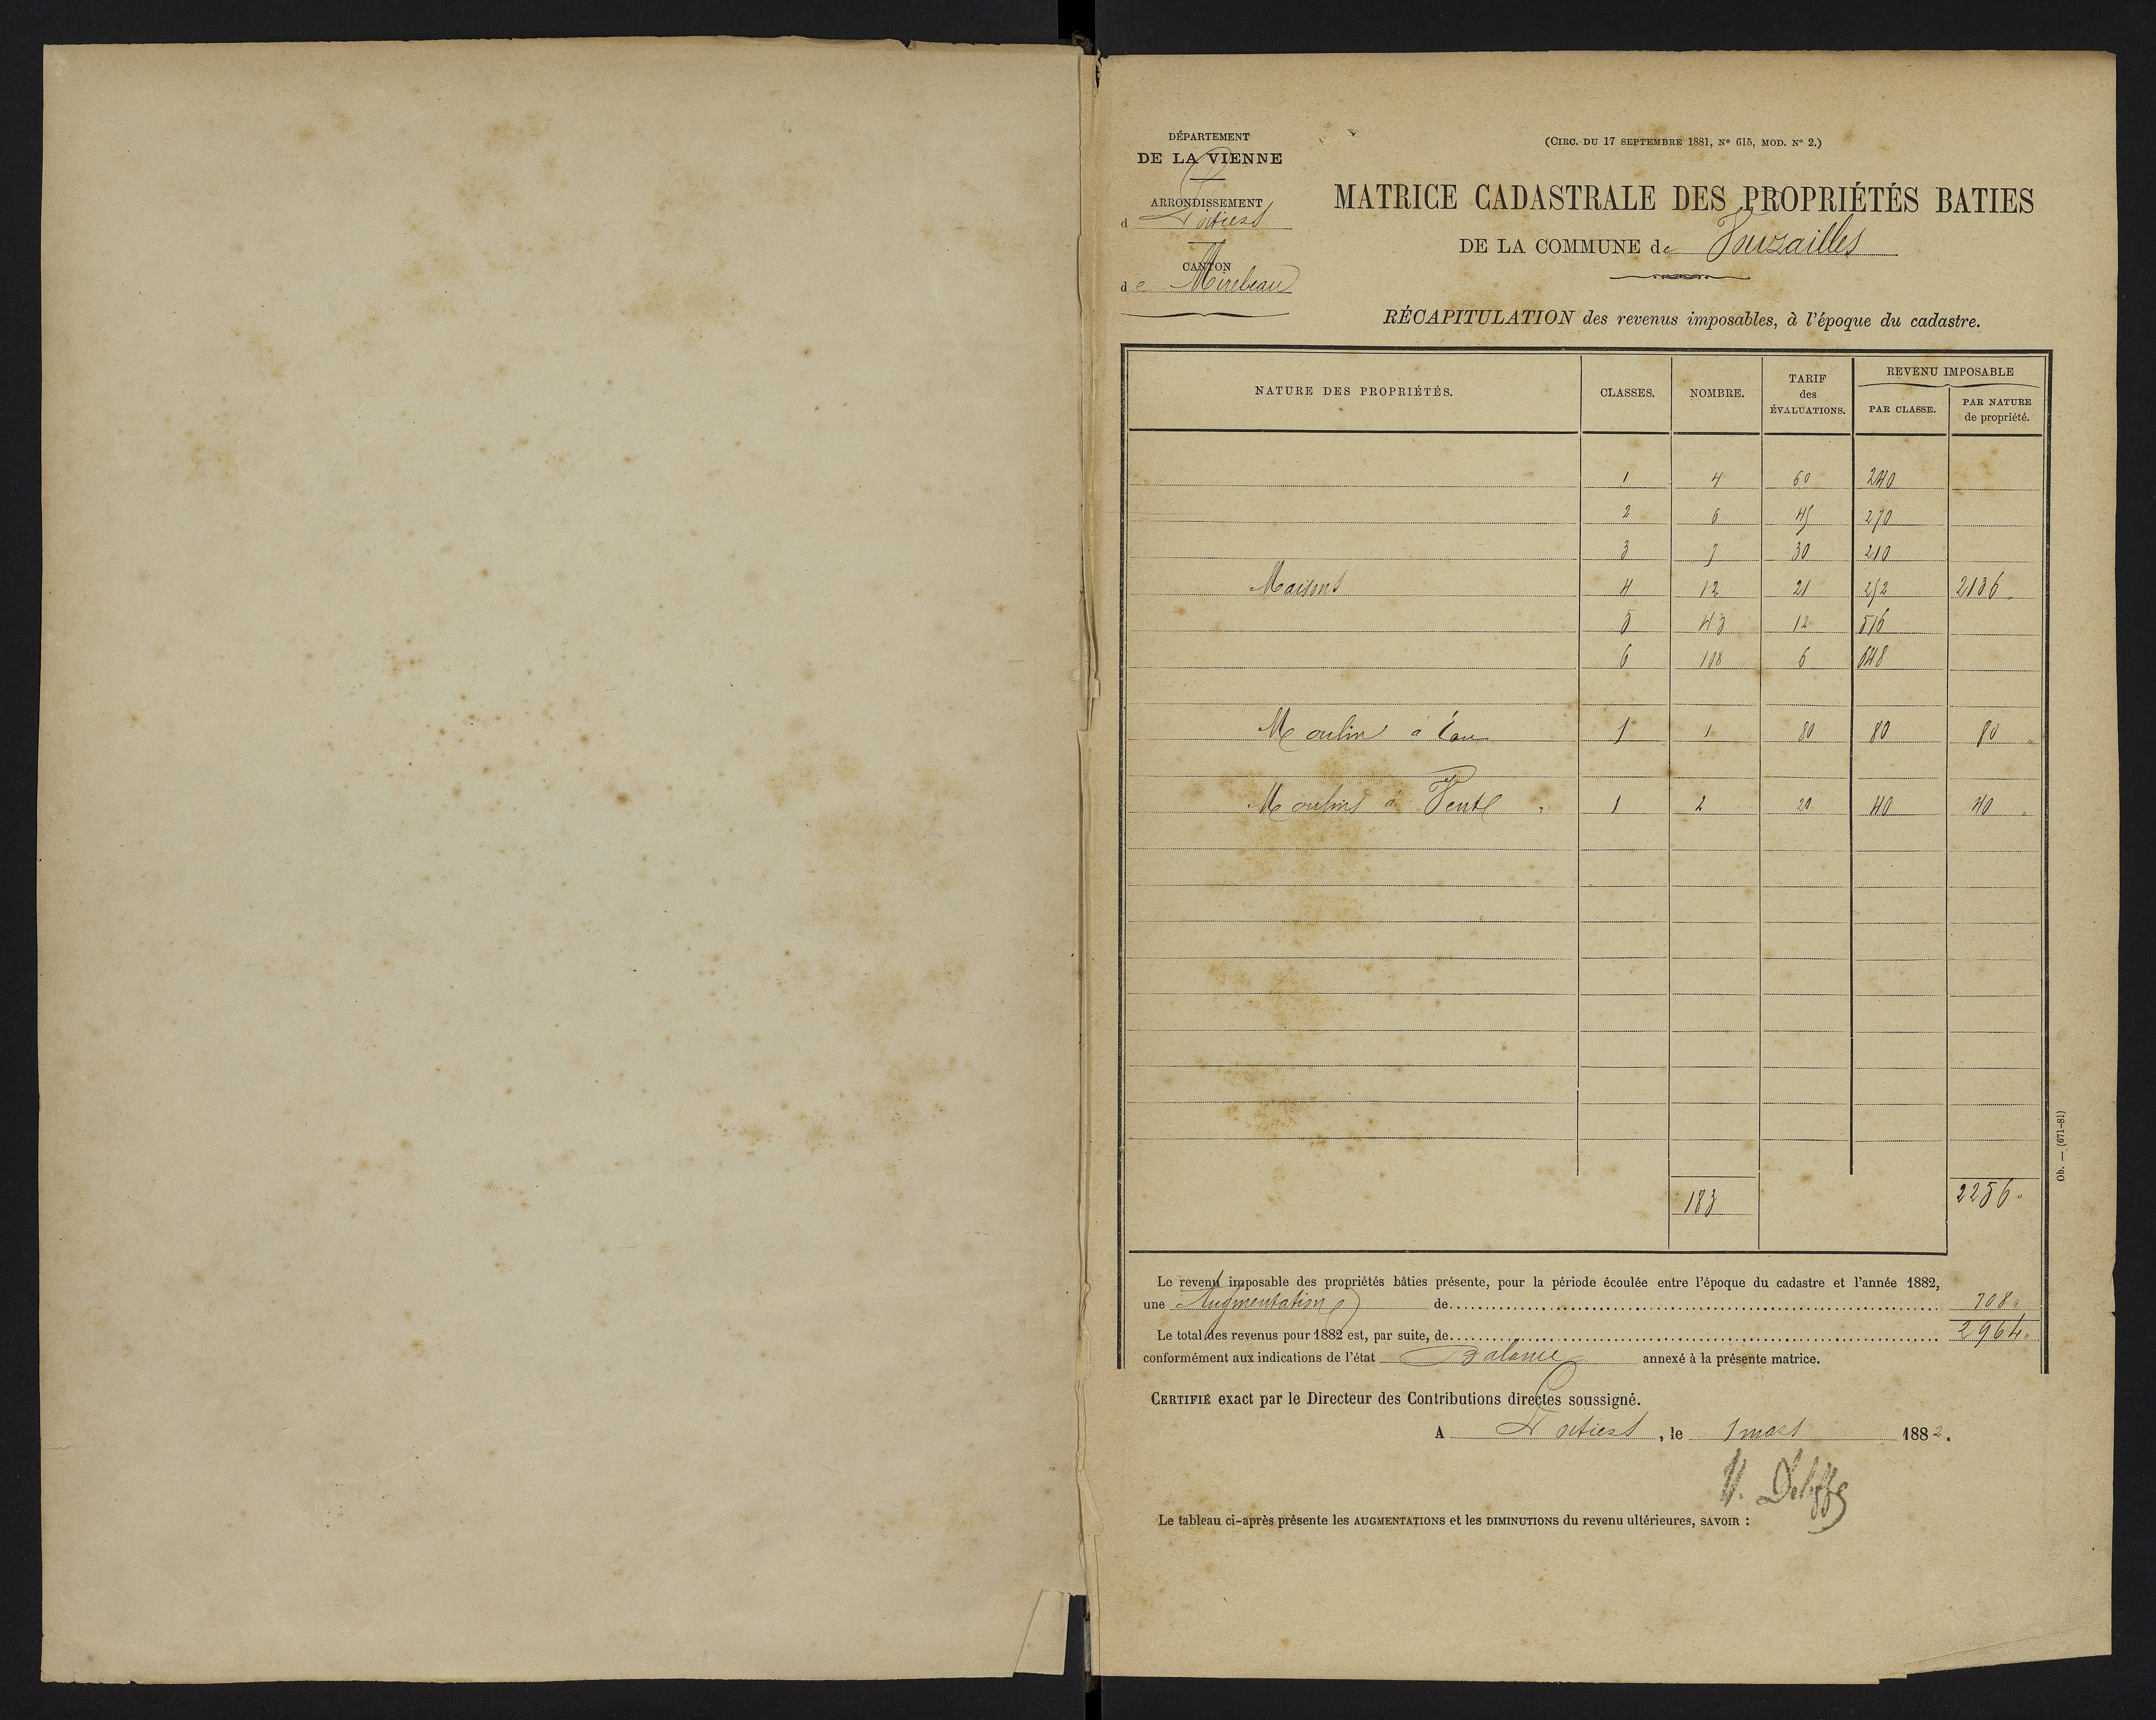 DÉPARTEMENT
DE LA VIENNE
ARRONDISSEMENT
d Poitiers
CANTON
de Mirebeau
(CIRC. DU 17 SEPTEMBRE 1881, N° 615, MOD. N° 2.)
MATRICE CADASTRALE DES PROPRIÉTÉS BATIES
DE LA COMMUNE de Vouzailles
RÉCAPITULATION des revenus imposables, à l'époque du cadastre.
NATURE DES PROPRIÉTÉS. CLASSES. NOMBRE. TARIF des ÉVALUATIONS. REVENU IMPOSABLE
PAR CLASSE. PAR NATURE de propriété.
1 4 60 240
2 6 45 270
3 7 30 210
Maisons 4 12 21 252 2136 "
5 43 12 516
6 108 6 648
Moulin à Eau 1 1 80 80 80 "
Moulins à Vent 1 2 20 40 40 "
183 2256 "
Le revenu imposable des propriétés bâties présente, pour la période écoulée entre l'époque du cadastre et l'année 1882,
une Augmentation de 708 "
Le total des revenus pour 1882 est, par suite, de 2964 "
conformément aux indications de l'état Balance annexé à la présente matrice.
CERTIFIÉ exact par le Directeur des Contributions directes soussigné.
A Poitiers, le 1 mars 1882.
Le tableau ci-après présente les AUGMENTATIONS et les DIMINUTIONS du revenu ultérieures, SAVOIR :
Ob. — (671-81)